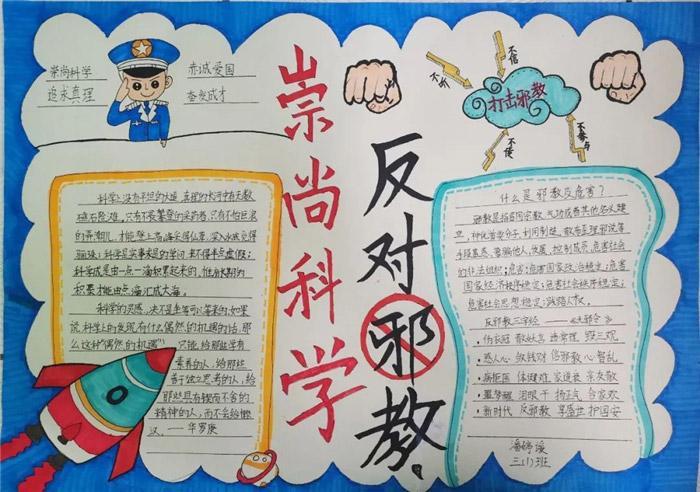 崇尚科学
追求真理
赤诚爱国
奋发成才
崇尚科学
反对邪教
不听
不信
不传
不参与
打击邪教
科学上没有平坦的大道，真理的长河中有无数
礁石险滩，只有不畏攀登的采药者，只有不怕巨浪
的弄潮儿，才能登上高峰采得仙草，深入水底觅得
骊珠；科学是实事求是的学问，来不得半点虚假；
科学成是由一点一滴积累起来的，惟有长期的
积累才能由点滴汇成大海。
科学的灵感，决不是坐等可以等来的。如果
说，科学上的发现有什么偶然的机遇的话，那
么这种"偶然的机遇"只能给那些学有
素养的人，给那些
善于独立思考的人，给
那些具有锲而不舍的
精神的人，而不会给懒
汉。——华罗庚
什么是邪教及危害？
邪教是指冒用宗教、气功或者其他名义建
立，神化首要分子，利用制造、散布歪理邪说等
手段蛊惑、蒙骗他人，发展、控制成员，危害社会
的非法组织；危害：危害国家政治稳定；危害
国家经济秩序稳定；危害社会秩序稳定；
危害社会思想稳定；践踏人权。
反邪教三字经——
伤长冠 散妖言 违常理 毁三观
惑人心 敛钱财 信邪教 心智乱
病拒医 体健难 家遭袭 亲友散
噩梦醒 泪眼干 扬正气 合家欢
新时代 反邪教 享盛世 护国安
三(1)班